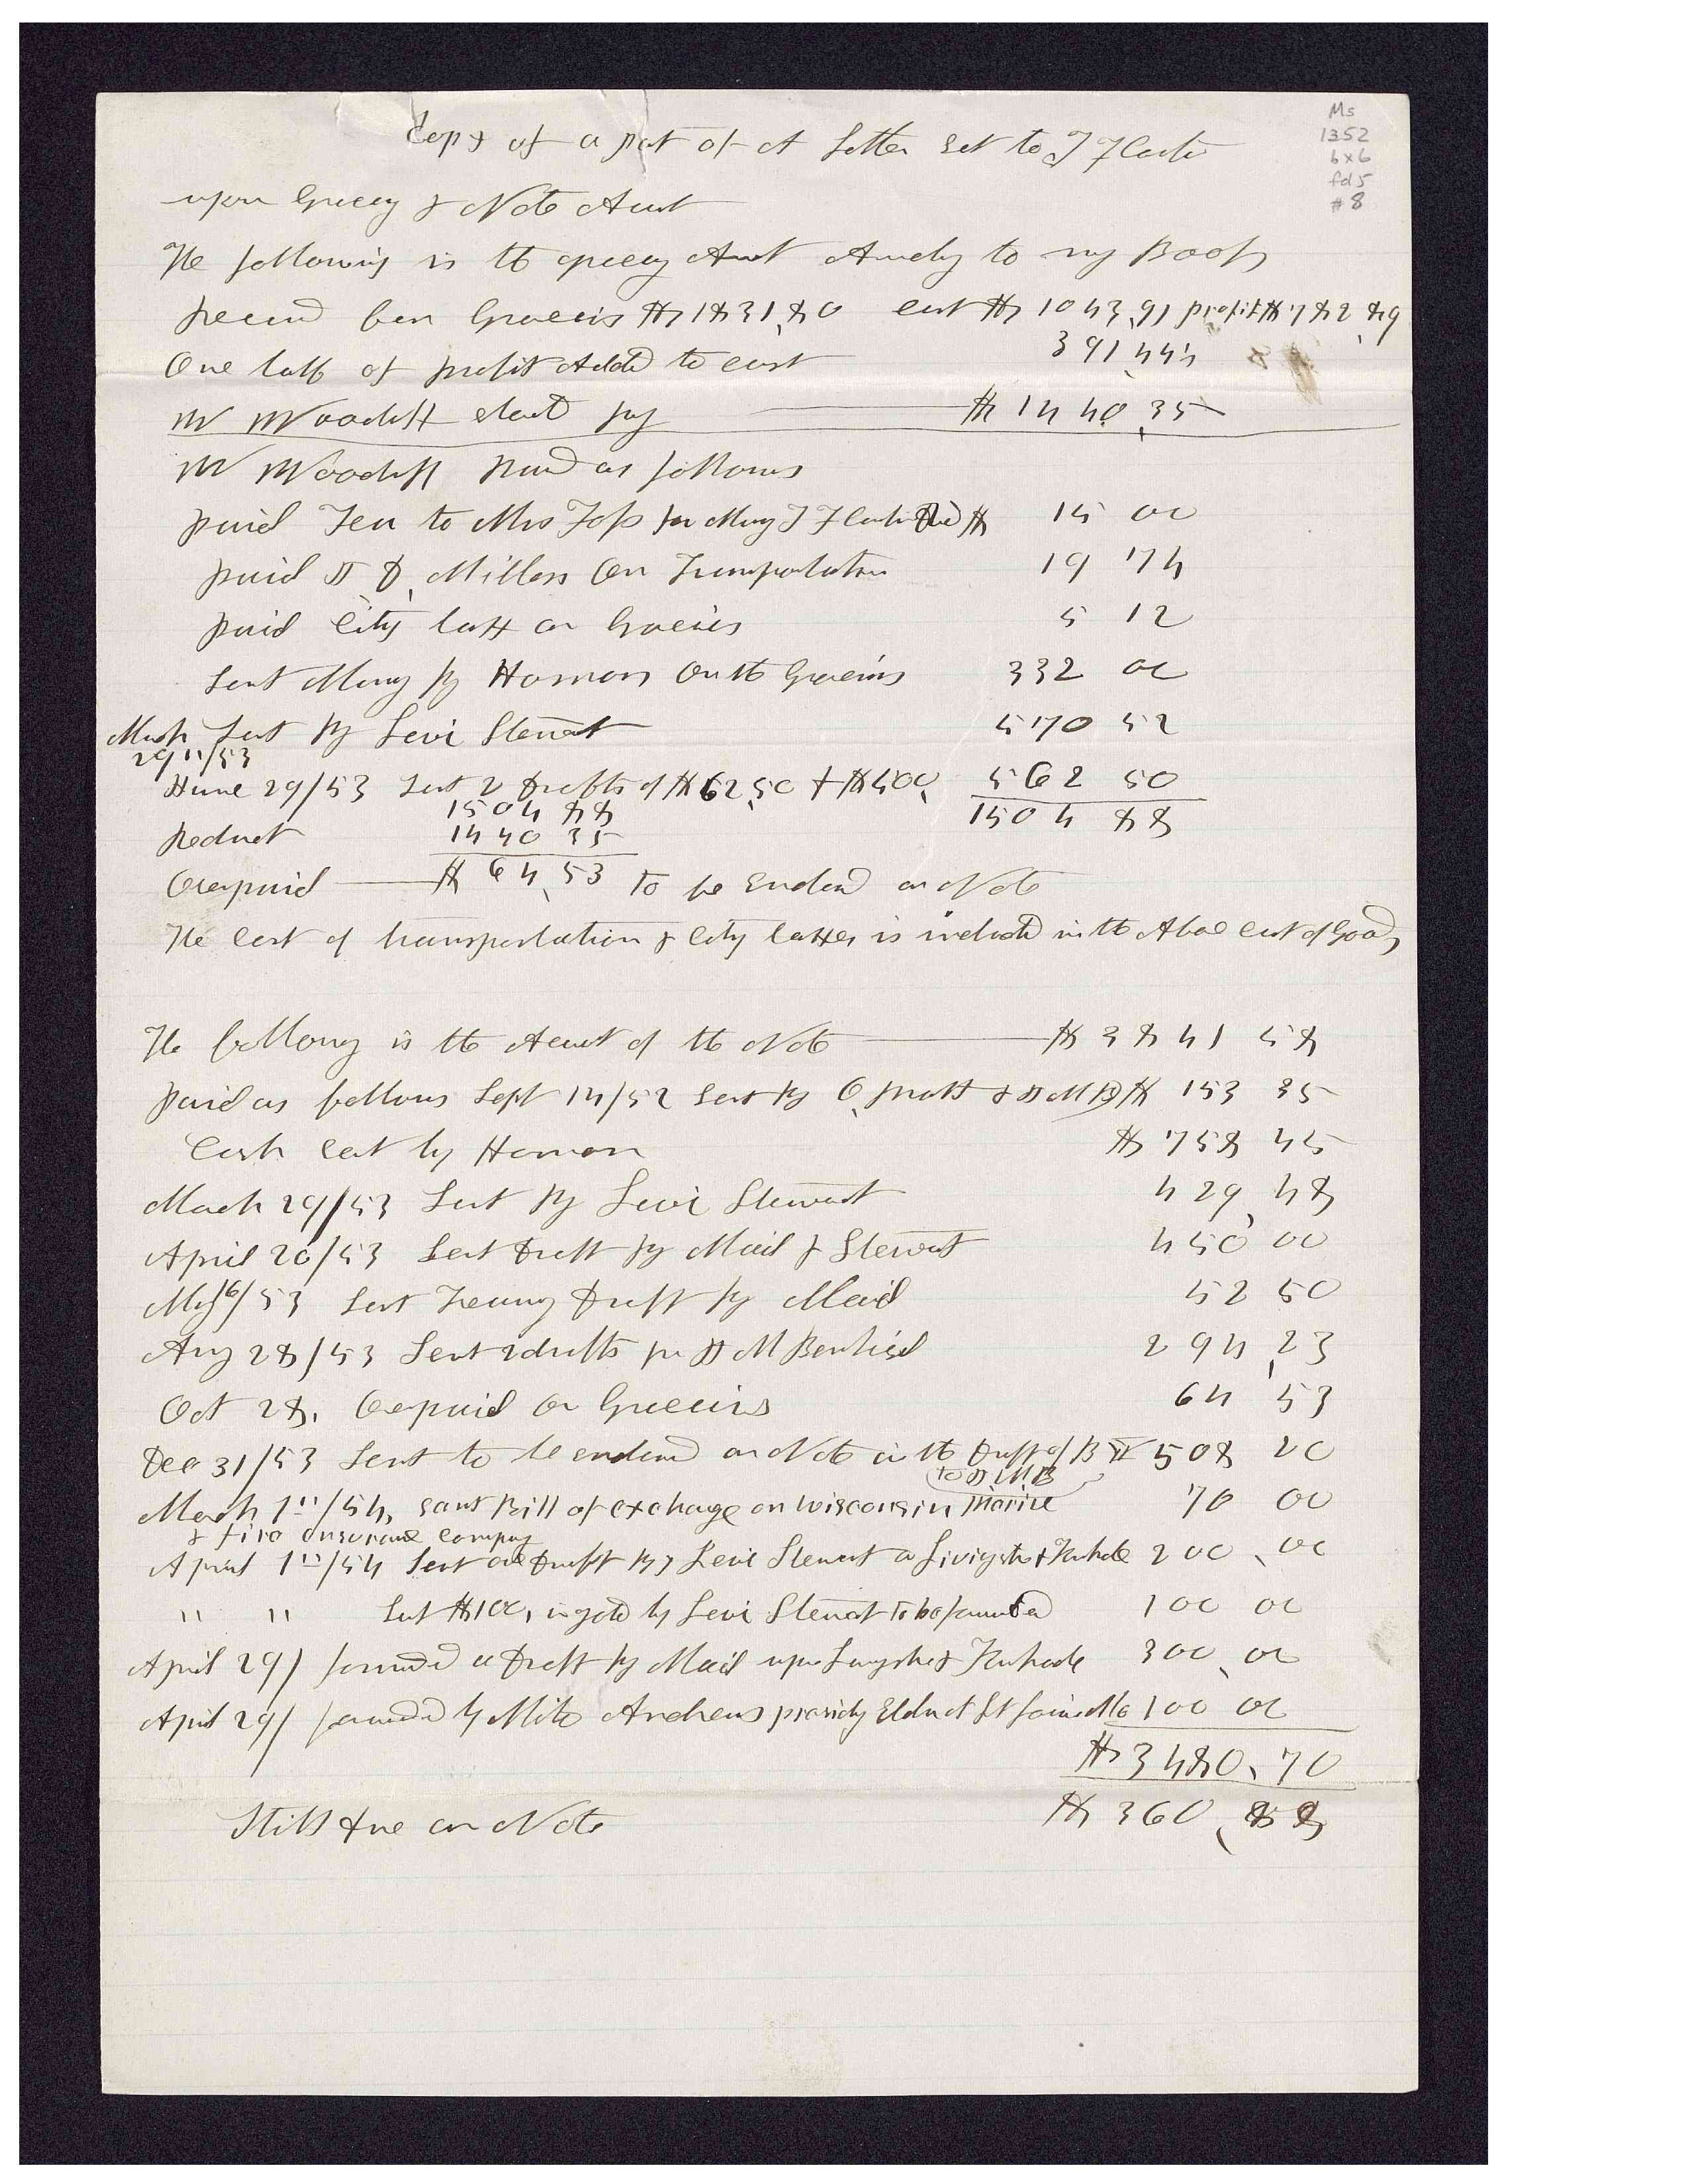 Ms
1352
bx6
fd5
#8
Copy of a part of A Letter set to J F Carter
upon Grocery & Note Acount
The following is the grocery Acount Acordg to my Books
Received for Groceries $1831,80 cost $1048,91 profit $782,89
One half of profit Added to cost 391,444
Mr Woodruff should pay $1440,35
Mr Woodruff paid as follows
paid Tea to Mrs Foss for Mary J F Carter $ 15 00
paid D. D. Millers On Transportation 19 74
paid City taxt on Groceries 5 12
Sent Money by Homon On the Groceries 332 00
March Sent By Levi Stewart 570 52
29"/53
June 29/53 Sent 2 Drafts of $62,50 + $500, 562 50
1504 88 1504 88
Deduct 1440 35
Overpaid $64,53 To be Endorsed on Note
The Cost of transportation & City taxes is included in the Above cost of Goods
The following is the Acount of the Note $3841 58
paid as follows Sept 14/52 Sent By O, Pratt & J M B $ 153 35
Cash sent by Homon $758 45
March 29/53 Sent By Levi Stewart 429,48
April 20/53 Sent Draft By Mail & Stewart 450 00
May 16/53 Sent Treasury Draft by Mail 52 50
Aug 28/53 Sent 2 drafts pr J M Bernhisel 294,23
Oct 28, Overpaid on Groceries 64 53
Dec 31/53 Sent to be endorsed on Note in the Draft of B Y 508 20
to J M B
March 1"/54, sent Bill of exchange on wisconsin Marine 70 00
& fire Insurance Company
April 1"/54 Sent one Draft By Levi Stewart on Livingston & Kinkade 200,00
" " Sent $100, in gold by Levi Stewart To be forwarded 100 00
April 29/ forwarded a Draft By Mail upon Livingston & Kinkade 300,00
April 29/ forwarded by Milo Andrews presidg Elder at St Louis Mo 100 00
$3480,70
Still due on Note $360,88